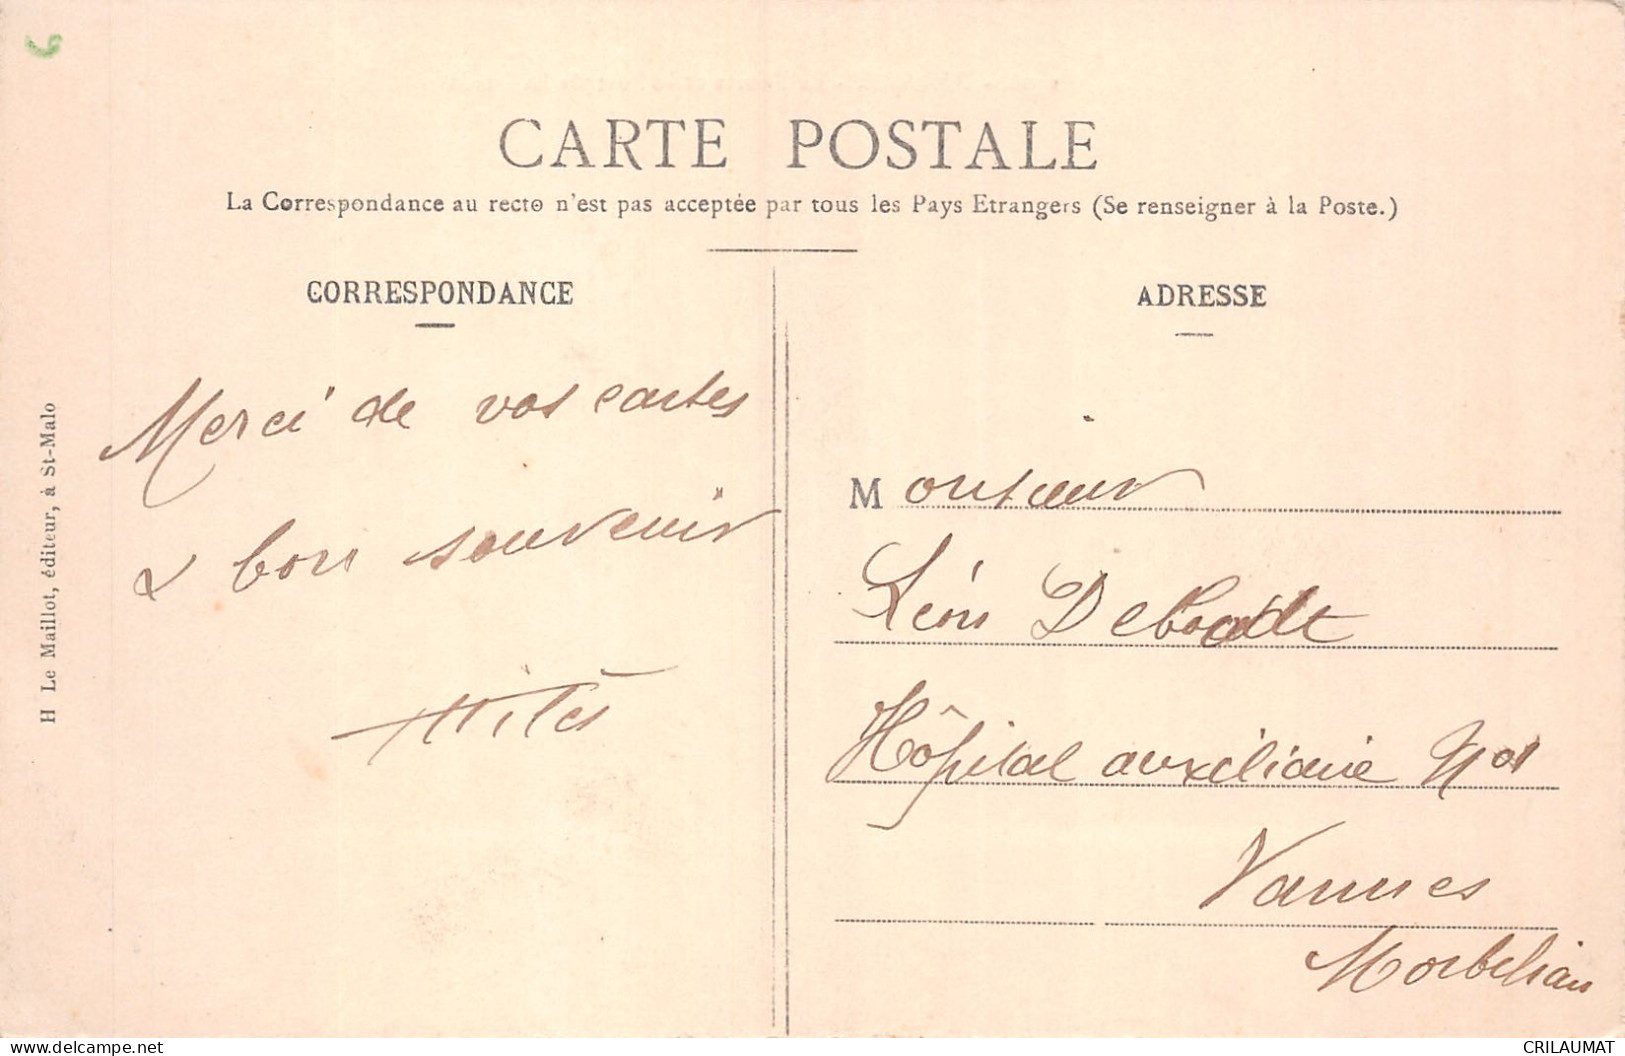 CARTE POSTALE
La Correspondance au recto n'est pas acceptée par tous les Pays Etrangers (Se renseigner à la Poste.)
CORRESPONDANCE
Merci de vos cartes
& bon souvenir
ADRESSE
Monsieur
Léon
Hôpital auxiliaire No 1
Vannes
Morbihan
H Le Maillot, éditeur, à St-Malo
CRILAUMAT